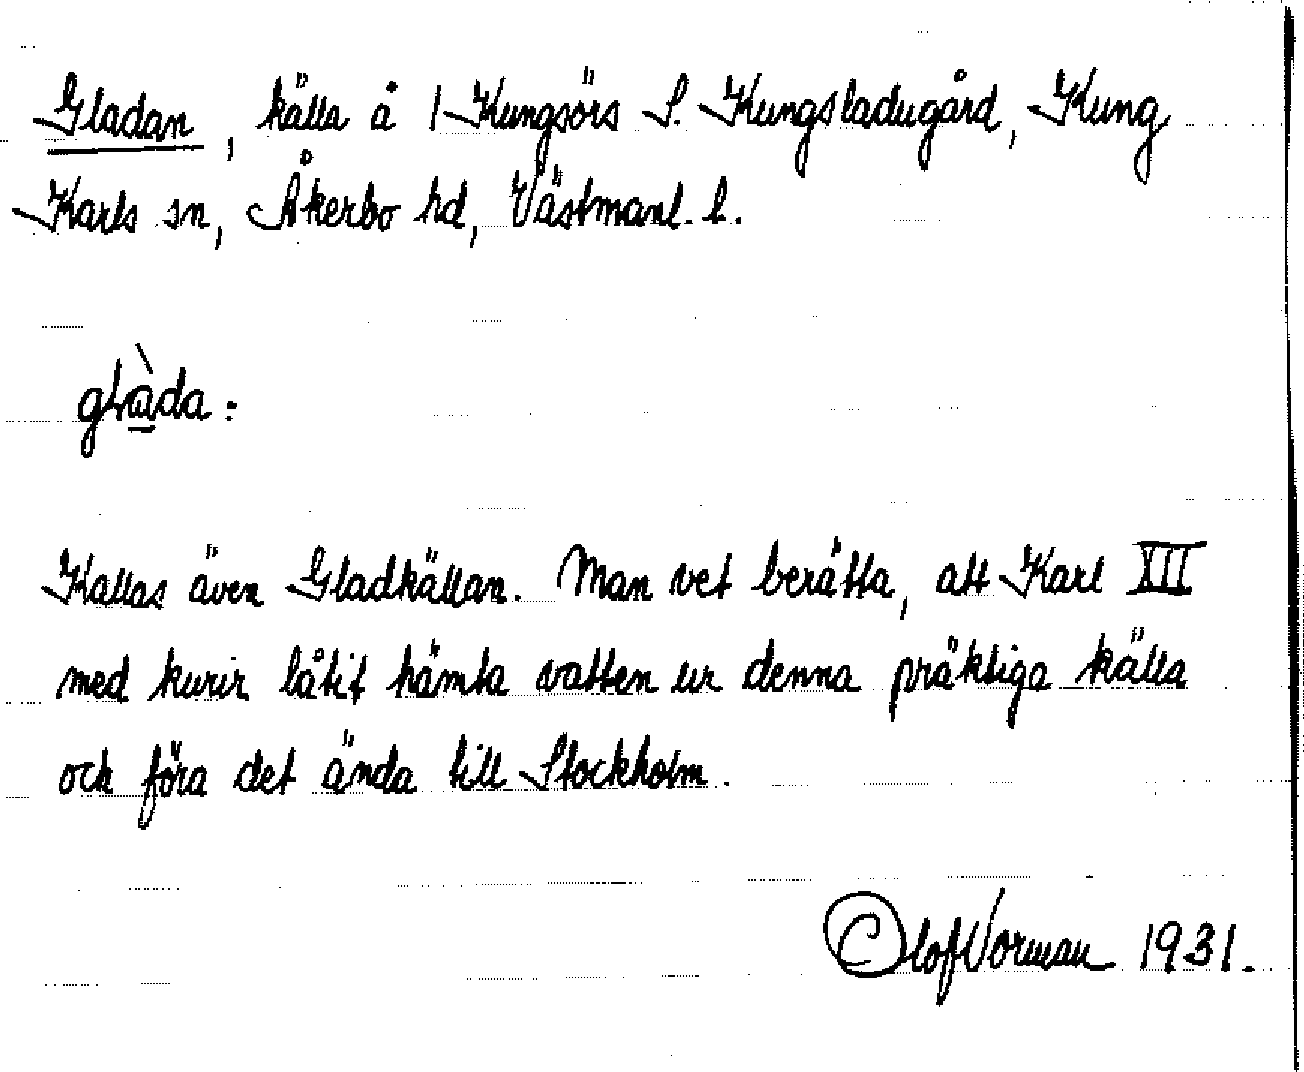 Gladan, källa å 1 Kungsörs S. Kungsladugård, Kung
Karls sn, Åkerbo hd, Västmanl. l.
glàda:
Kallas även Gladkällan. Man vet berätta, att Karl XIII
med kurir låtit hämta vatten ur denna präktiga källa
och föra det ända till Stockholm.
Olof Vorman 1931.